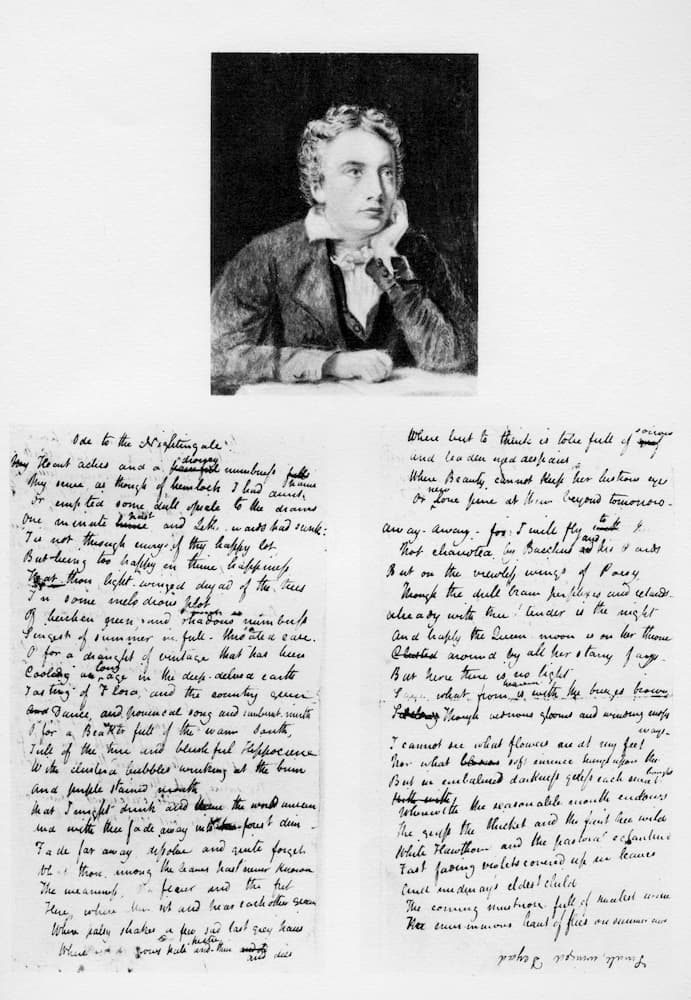 Ode to the Nightingale.
My Heart aches and a drowsy painful numbness falls
My sense as though of hemlock I had drunk
Or emptied some dull opiate to the drains
One minute past and Lethe wards had sunk:
Tis not through envy of thy happy lot
But being too happy in thine happiness
That thou light-winged dryad of the trees
In some melodious plot
Of beechen green, and shadows numberless
Singest of summer in full-throated ease.
O for a draught of vintage that has been
Cooling an age long in the deep-delved earth
Tasting of Flora, and the country green
And Dance, and provencal song and sunburnt mirth
O for a Beaker full of the warm South,
Full of the true and blushful Hippocrene
With cluster'd bubbles winking at the brim
And purple stained mouth
That I might drink and leave the world unseen
And with thee fade away into forest dim-
Fade far away dissolve and quite forget
What thou among the leaves hast never known
The weariness, the fever and the fret
Here, where Men sit and hear each other groan
Where palsy shakes a few sad last grey hairs
Where grows pale and thin and dies
Where but to think is to be full of sorrow
and leaden eyed despairs
Where Beauty cannot keep her lustrous eyes
Or new Love pine at them beyond tomorrow-
Away-away-for I will fly to thee
Not charioted by Bacchus and his Pards
But on the viewless wings of Poesy
Though the dull brain perplexes and retards-
Already with thee! tender is the night
And haply the Queen-moon is on her throne
Cluster'd around by all her starry fays-
But here there is no light
Save what from is with the breezes blown
Through verdurous glooms and winding mossy
ways-
I cannot see what flowers are at my feet
Nor what soft incense hangs upon the
boughs
But in embalmed darkness guess each sweet
Wherewith the seasonable month endows
The grass the thicket and the fruit tree wild
White Hawthorn and the pastoral eglantine
Fast fading violets covered up in leaves
And midmays eldest child
The coming muskrose full of sweetest wine
The murmurous haunt of flies on summer eves
Small, winged Dryad